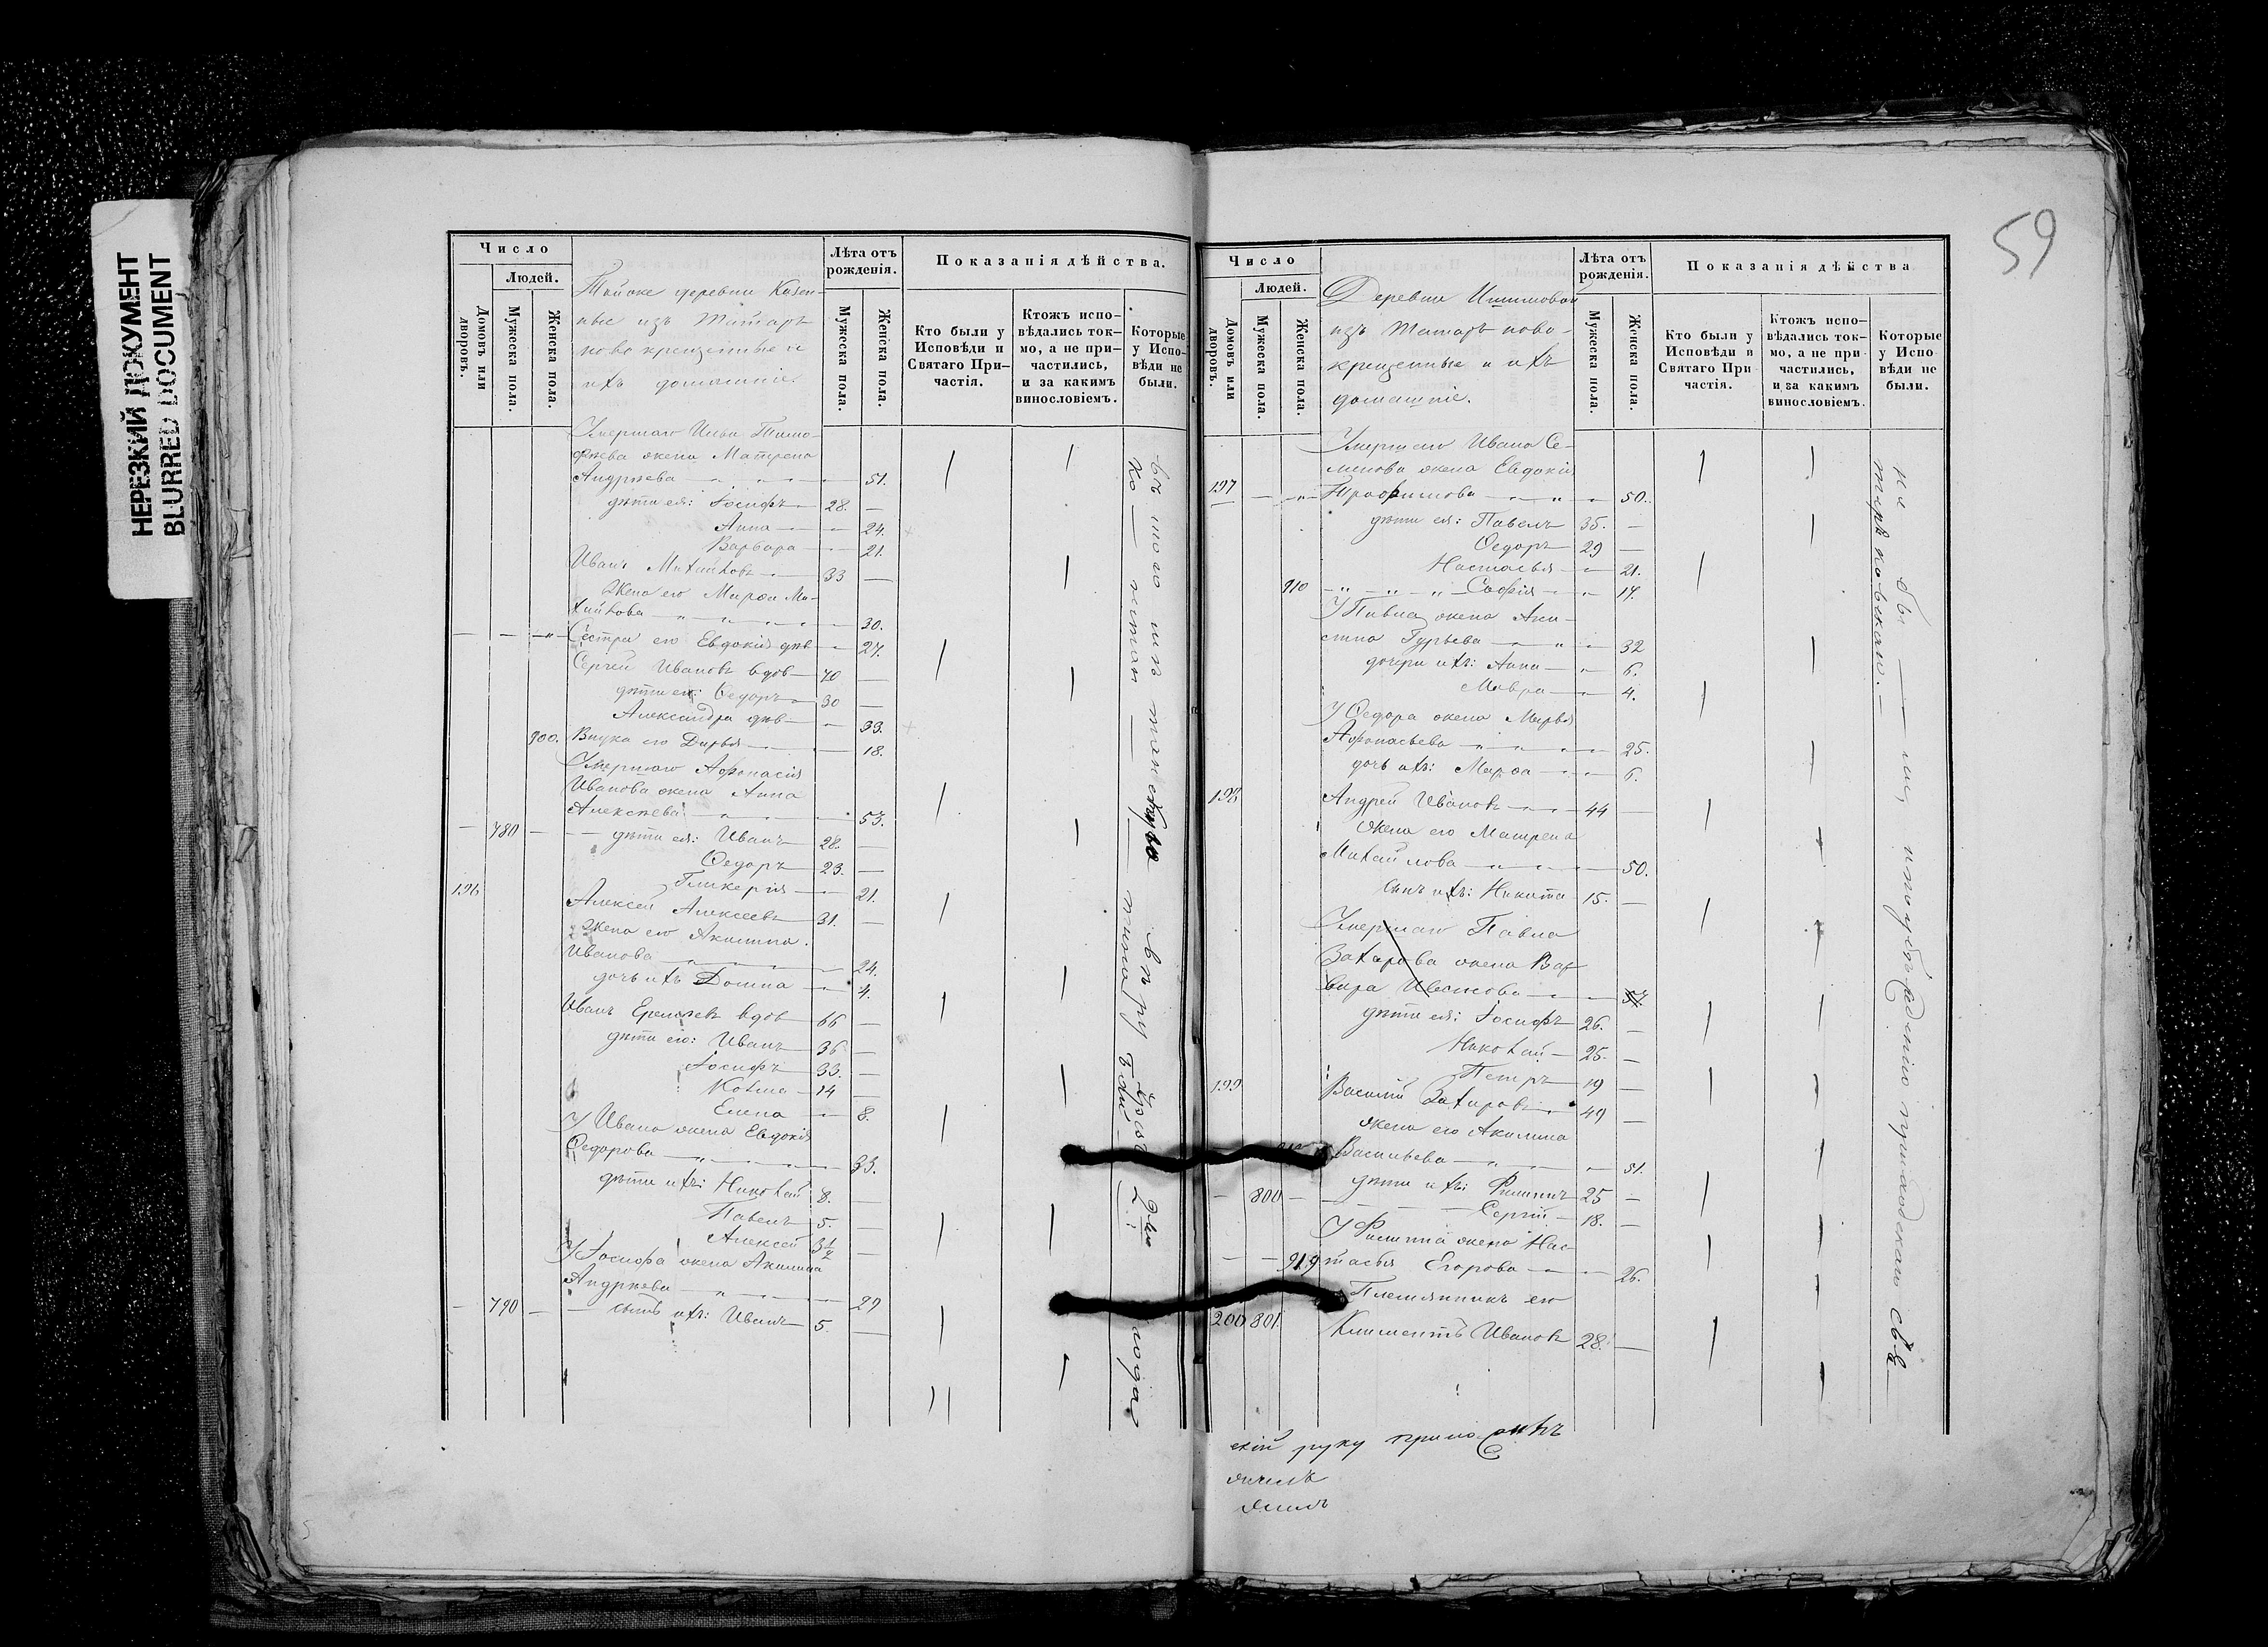 НЕРЕЗКИЙ ДОКУМЕНТ
BLURRED DOCUMENT
Число
Людей.
Домовъ или дворовъ.
Мужеска пола.
Женска пола.
Тойже деревни Казен-
ные изъ татаръ
новокрещенные и
ихъ домашніе.
Лѣта отъ рожденія.
Мужеска пола.
Женска пола.
Показанія дѣйства.
Кто были у Исповѣди и Святаго При-частія.
Ктожъ испо-вѣдались ток-мо, а не при-частились, и за какимъ винословіемъ.
Которые у Испо-вѣди не были.
Умершаго Ильи Тимо-
фѣева жена Матрена
Андрѣева 51.
дѣти ея: Іосифъ 28. —
Анна 24.
Варвара 21.
Иванъ Михайловъ 33 —
Жена его Марѳа Ми-
хайлова 30.
Сестра его Евдокія дѣв 27.
Сергей Ивановъ вдов 70 —
дѣти ег: Ѳедоръ 30 —
Александра дѣв 33.
900. Внука его Дарья 18.
Умершаго Афонасія
Иванова жена Анна
Алексѣева 53.
780 дѣти ея: Иванъ 28. —
Ѳедоръ 23. —
Гликерія 21.
196
Алексей Алексеевъ 31. —
Жена его Акилина
Иванова 24.
дочь ихъ Домна 4.
Иванъ Ермолаевъ вдов 66 —
дѣти его: Иванъ 36 —
Іосифъ 33. —
Козма 14 —
Елена 8.
У Ивана жена Евдокія
Ѳедорова 33.
дѣти ихъ: Николай 8. —
Павелъ 5. —
Алексей 3½ —
У Іосифа жена Акилина
Андрѣева 29
790 сынъ ихъ: Иванъ 5. —
59
Число
Людей.
Домовъ или дворовъ.
Мужеска пола.
Женска пола.
Деревни
изъ татаръ ново-
крещенные и ихъ
домашніе.
Лѣта отъ рожденія.
Мужеска пола.
Женска пола.
Показанія дѣйства
Кто были у Исповѣди и Святаго При частія.
Ктожъ испо-вѣдались ток-мо, а не при частились, и за какимъ винословіемъ.
Которые у Испо вѣди не были.
Умершаго Ивана Се-
менова жена Евдокія
197 Трофимова 50.
дѣти ея: Павелъ 35. —
Ѳедоръ 29 —
Настасья 21.
910 Софія 17.
У Павла жена Аку-
лина Гурьева 32
дочери ихъ: Анна 6.
Мавра 4.
У Ѳедора жена Марья
Афонасьева 25.
дочь ихъ: Марѳа 6.
198 Андрей Ивановъ 44 —
Жена его Матрена
Михайлова 50.
Сынъ ихъ: Никита 15. —
Умершаго Павла
Захарова жена Вар-
вара
дѣти ея: Іосифъ 26. —
Николай 25. —
Петръ 19 —
199 Василій Захаровъ 49 —
жена его Акилина
Васильева 51.
дѣти ихъ: Филиппъ 25 —
800 Сергій 18. —
У Филиппа жена Нас-
919 тасья Егорова 26.
Племянникъ его
200 801. Климентъ Ивановъ 28. —
скій руку приложилъ